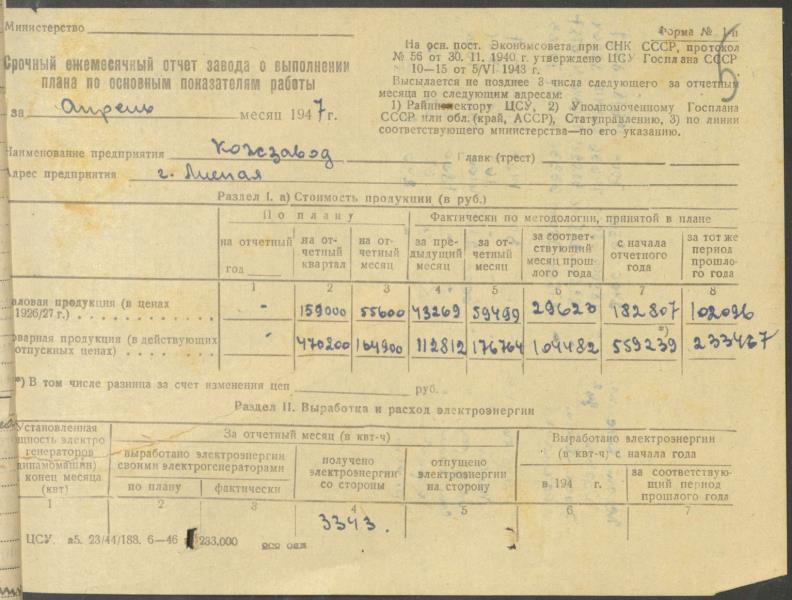 Министерство
Срочный ежемесячный отчет завода о выполнении
плана по основным показателям работы
за Апрель месяц 1947 г.
Форма № 1-п
5
На осн. пост. Экономсовета при СНК СССР, протокол
№ 56 от 30. 11. 1940 г. утверждено ЦСУ Госплана СССР
10—15 от 5/VI 1943 г.
Высылается не позднее 3 числа следующего за отчетным
месяца по следующим адресам:
1) Райинспектору ЦСУ, 2) Уполномоченному Госплана
СССР или обл. (край, АССР), Статуправлению, 3) по линии
соответствующего министерства—по его указанию.
Наименование предприятия Кожзавод Главк (трест)
Адрес предприятия г. Лиепая
Раздел I. а) Стоимость продукции (в руб.)
По плану
Фактически по методологии, принятой в плане
на отчетный год
на отчетный квартал
на отчетный месяц
за предыдущий месяц
за отчетный месяц
за соответствующий месяц прошлого года
с начала отчетного года
за тот же период прошлого года
1 2 3 4 5 6 7 8
аловая продукция (в ценах
1926/27 г.) - 159000 55600 43269 59499 29620 182807 102096
оварная продукция (в действующих
отпускных ценах) - 470200 164900 112812 176764 104482 559239 *) 233467
*) В том числе разница за счет изменения цен руб.
Раздел II. Выработка и расход электроэнергии
Установленная
мощность электро
генераторов
(динамомашин)
конец месяца
(квт)
За отчетный месяц (в квт-ч)
Выработано электроэнергии
(в квт-ч) с начала года
выработано электроэнергии
своими электрогенераторами
по плану
фактически
получено
электроэнергии
со стороны
отпущено
электроэнергии
на сторону
в 194 г.
за соответствующий период
прошлого года
1 2 3 4 5 6 7
3343.
ЦСУ. з5. 23/44/188. 6—46 233.000